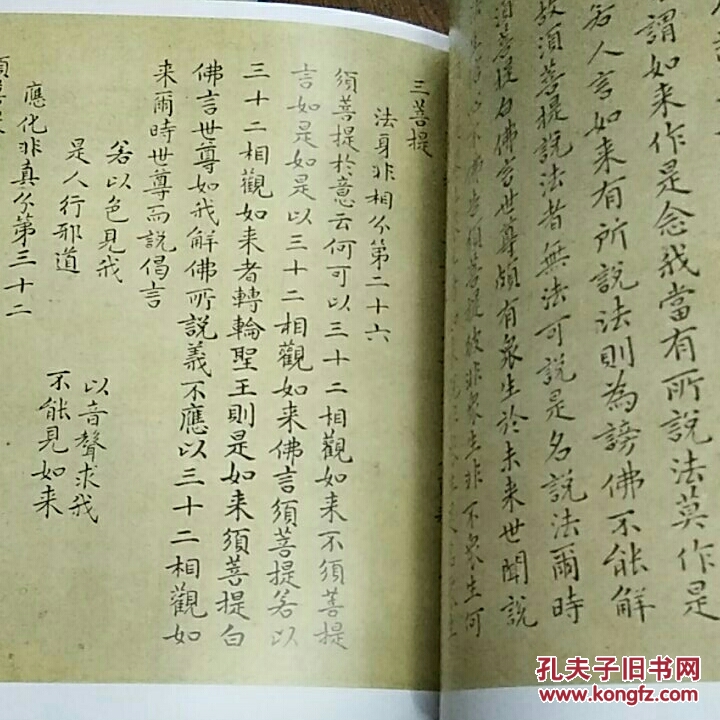 謂如来作是念我當有所說法莫作是
若人言如来有所說法則為謗佛不能解
故須菩提說法者無法可說是名說法爾時
須菩提白佛言世尊頗有衆生於未来世聞說
須菩提彼非衆生非不衆生何
三菩提
法身非相分第二十六
須菩提於意云何可以三十二相觀如来不須菩提
言如是如是以三十二相觀如来佛言須菩提若以
三十二相觀如来者轉輪聖王則是如来須菩提白
佛言世尊如我解佛所說義不應以三十二相觀如
来爾時世尊而說偈言
若以色見我 以音聲求我
是人行邪道 不能見如来
應化非真分第三十二
孔夫子旧书网
www.kongfz.com